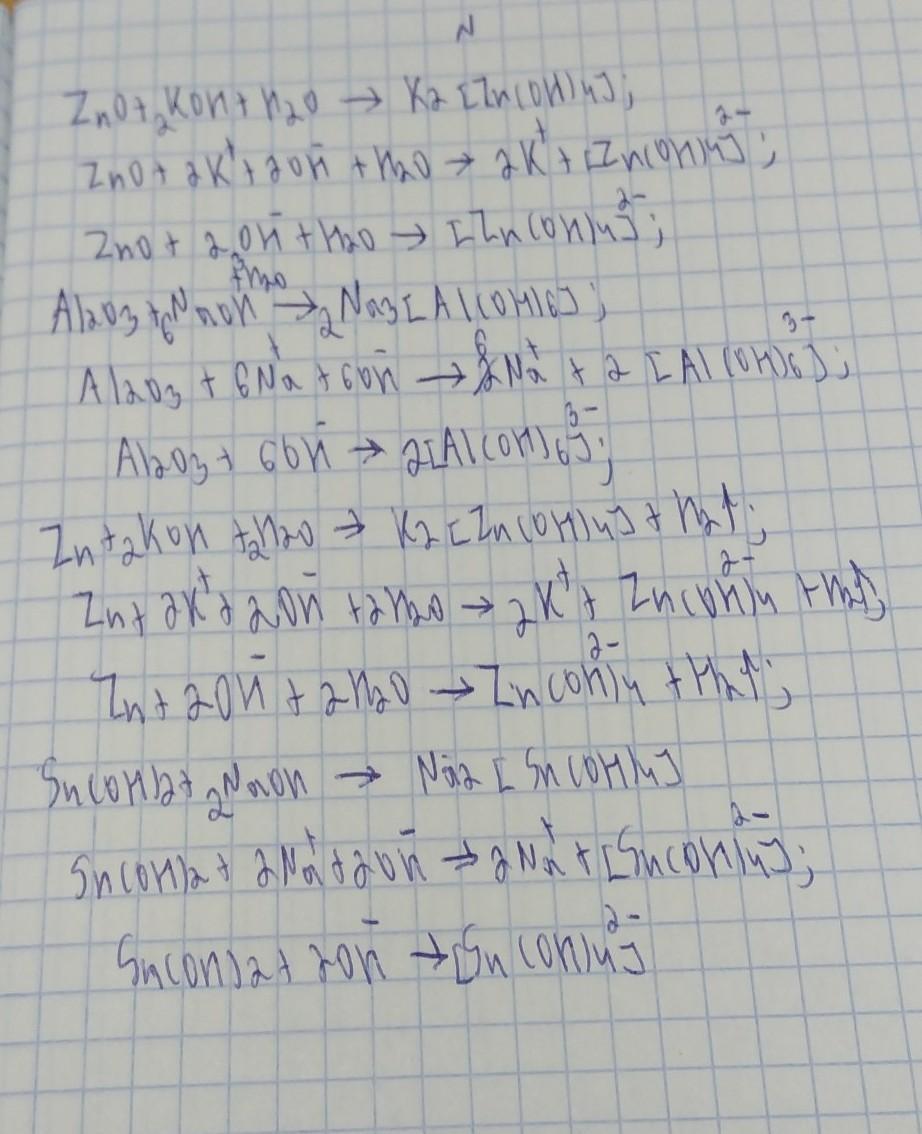 N
ZnO + 2KOH + H2O → K2 [Zn(OH)4];
ZnO + 2K⁺ + 2OH⁻ + H2O → 2K⁺ + [Zn(OH)4]²⁻;
ZnO + 2OH⁻ + H2O → [Zn(OH)4]²⁻;
Al2O3 + 6NaOH + 3H2O → 2Na3[Al(OH)6];
Al2O3 + 6Na⁺ + 6OH⁻ → 6Na⁺ + 2 [Al(OH)6]³⁻;
Al2O3 + 6OH⁻ → 2[Al(OH)6]³⁻;
Zn + 2KOH + 2H2O → K2 [Zn(OH)4] + H2↑;
Zn + 2K⁺ + 2OH⁻ + 2H2O → 2K⁺ + Zn(OH)4²⁻ + H2↑;
Zn + 2OH⁻ + 2H2O → Zn(OH)4²⁻ + H2↑;
Sn(OH)2 + 2NaOH → Na2 [Sn(OH)4]
Sn(OH)2 + 2Na⁺ + 2OH⁻ → 2Na⁺ + [Sn(OH)4]²⁻;
Sn(OH)2 + 2OH⁻ → [Sn(OH)4]²⁻